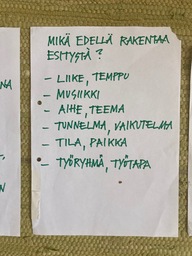 MIKÄ EDELLÄ RAKENTAA
ESITYSTÄ?
- LIIKE, TEMPPU
- MUSIIKKI
- AIHE, TEEMA
- TUNNELMA, VAIKUTELMA
- TILA, PAIKKA
- TYÖRYHMÄ, TYÖTAPA